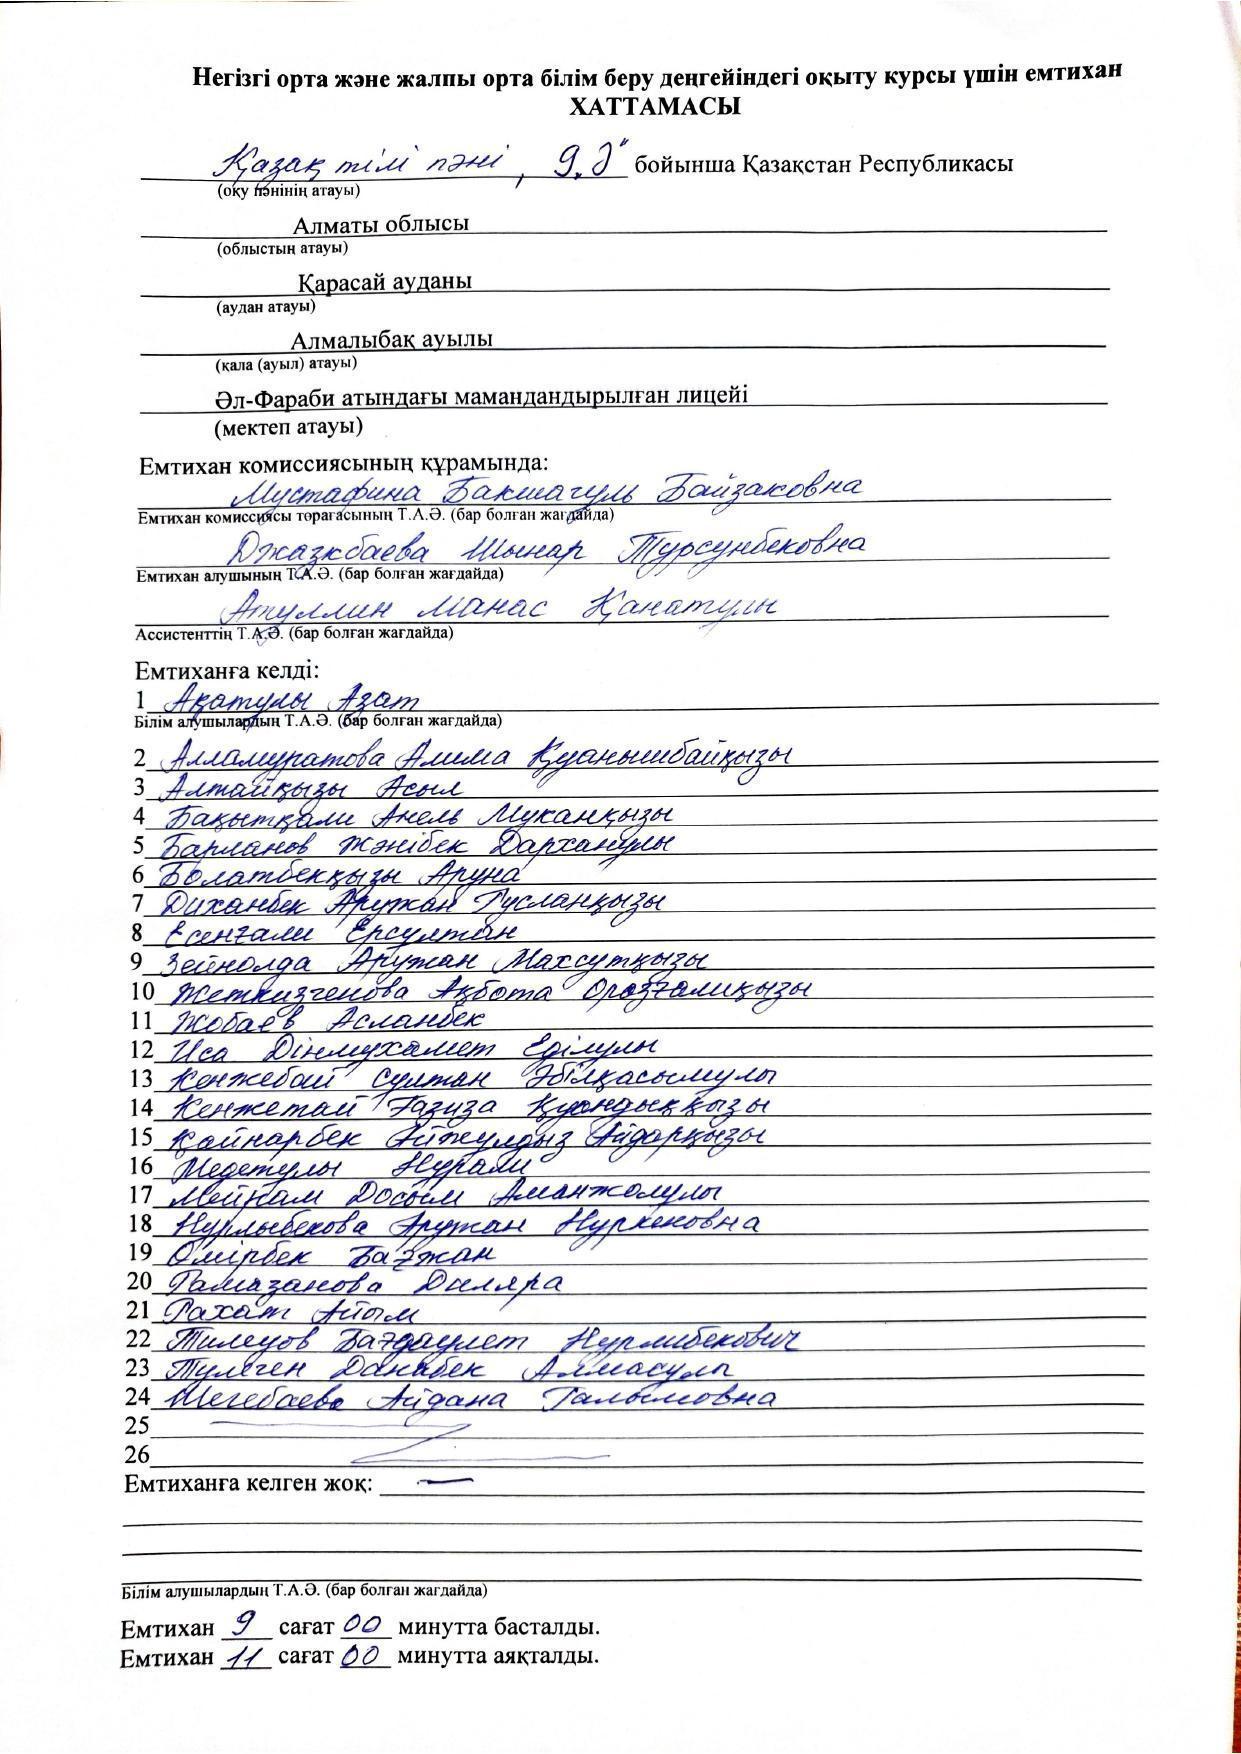 Негізгі орта және жалпы орта білім беру деңгейіндегі оқыту курсы үшін емтихан
ХАТТАМАСЫ
Қазақ тілі пәні, 9 „Ә" бойынша Қазақстан Республикасы
(оқу пәнінің атауы)
Алматы облысы
(облыстың атауы)
Қарасай ауданы
(аудан атауы)
Алмалыбақ ауылы
(қала (ауыл) атауы)
Әл-Фараби атындағы мамандандырылған лицейі
(мектеп атауы)
Емтихан комиссиясының құрамында:
Мустафина Бакшагуль Байзаковна
Емтихан комиссиясы торағасының Т.А.Ә. (бар болған жағдайда)
Джазкбаева Шынар Турсунбековна
Емтихан алушының Т.А.Ә. (бар болған жағдайда)
Атуллин Манас Қанатулы
Ассистенттің Т.А.Ә. (бар болған жағдайда)
Емтиханға келді:
1 Ақатулы Азат
Білім алушылардың Т.А.Ә. (бар болған жағдайда)
2 Алламуратова Алима Қуанышбайқызы
3 Алтайқызы Асыл
4 Бақытқали Анель Муканқызы
5 Барланов Жәнібек Дарханулы
6 Болатбекқызы Аруна
7 Диханбек Аружан Русланқызы
8 Есенғали Ерсултан
9 Зейнолда Аружан Махсутқызы
10 Жеткизгенова Ақбота Оразғалиқызы
11 Жобаев Асланбек
12 Иса Дінмухамет Еділулы
13 Кенжебай Султан Әбілқасымулы
14 Кенжетай Ғазиза Қуандыққызы
15 Қайнарбек Айжулдыз Айдарқызы
16 Медетулы Нурали
17 Мейрам Досым Аманжолулы
18 Нурлыбекова Аружан Нуркеновна
19 Өмірбек Бағжан
20 Рамазанова Диляра
21 Рахат Айым
22 Тилеуов Бағдаулет Нурлибекович
23 Тулеген Данабек Алмасулы
24 Шегебаева Айдана Галымовна
25
26
Емтиханға келген жоқ: —
Білім алушылардың Т.А.Ә. (бар болған жағдайда)
Емтихан 9 сағат 00 минутта басталды.
Емтихан 11 сағат 00 минутта аяқталды.